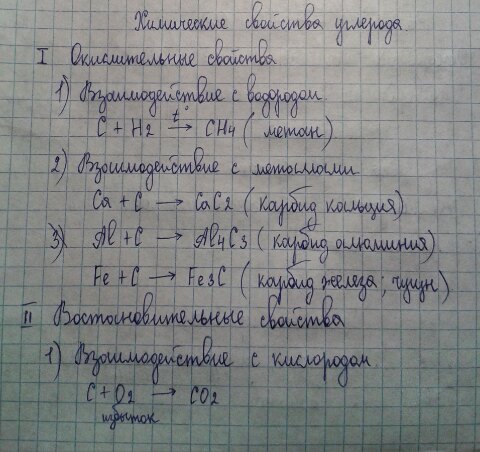 Химические свойства углерода.
I Окислительные свойства
1) Взаимодействие с водородом.
C + H2 →t° CH4 (метан)
2) Взаимодействие с металлами
Ca + C → CaC2 (карбид кальция)
3) Al + C → Al4C3 (карбид алюминия)
Fe + C → Fe3C (карбид железа; чугун)
II Востановительные свойства
1) Взаимодействие с кислородом.
C + O2 → CO2
избыток